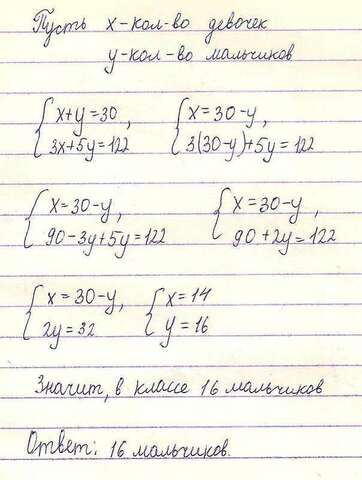 Пусть x-кол-во девочек
y-кол-во мальчиков
{x+y=30, {x=30-y,
3x+5y=122 3(30-y)+5y=122
{x=30-y, {x=30-y,
90-3y+5y=122 90+2y=122
{x=30-y, {x=14
2y=32 y=16
Значит, в классе 16 мальчиков
Ответ: 16 мальчиков.